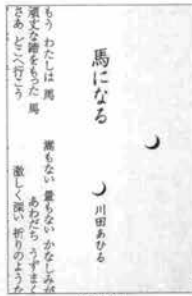 馬になる
川田あひる
もう わたしは 馬
頑丈な蹄をもった 馬
さあ どこへ行こう
嵩もない 量もない かなしみが
あわだち うずまく
激しく深い 祈りのような